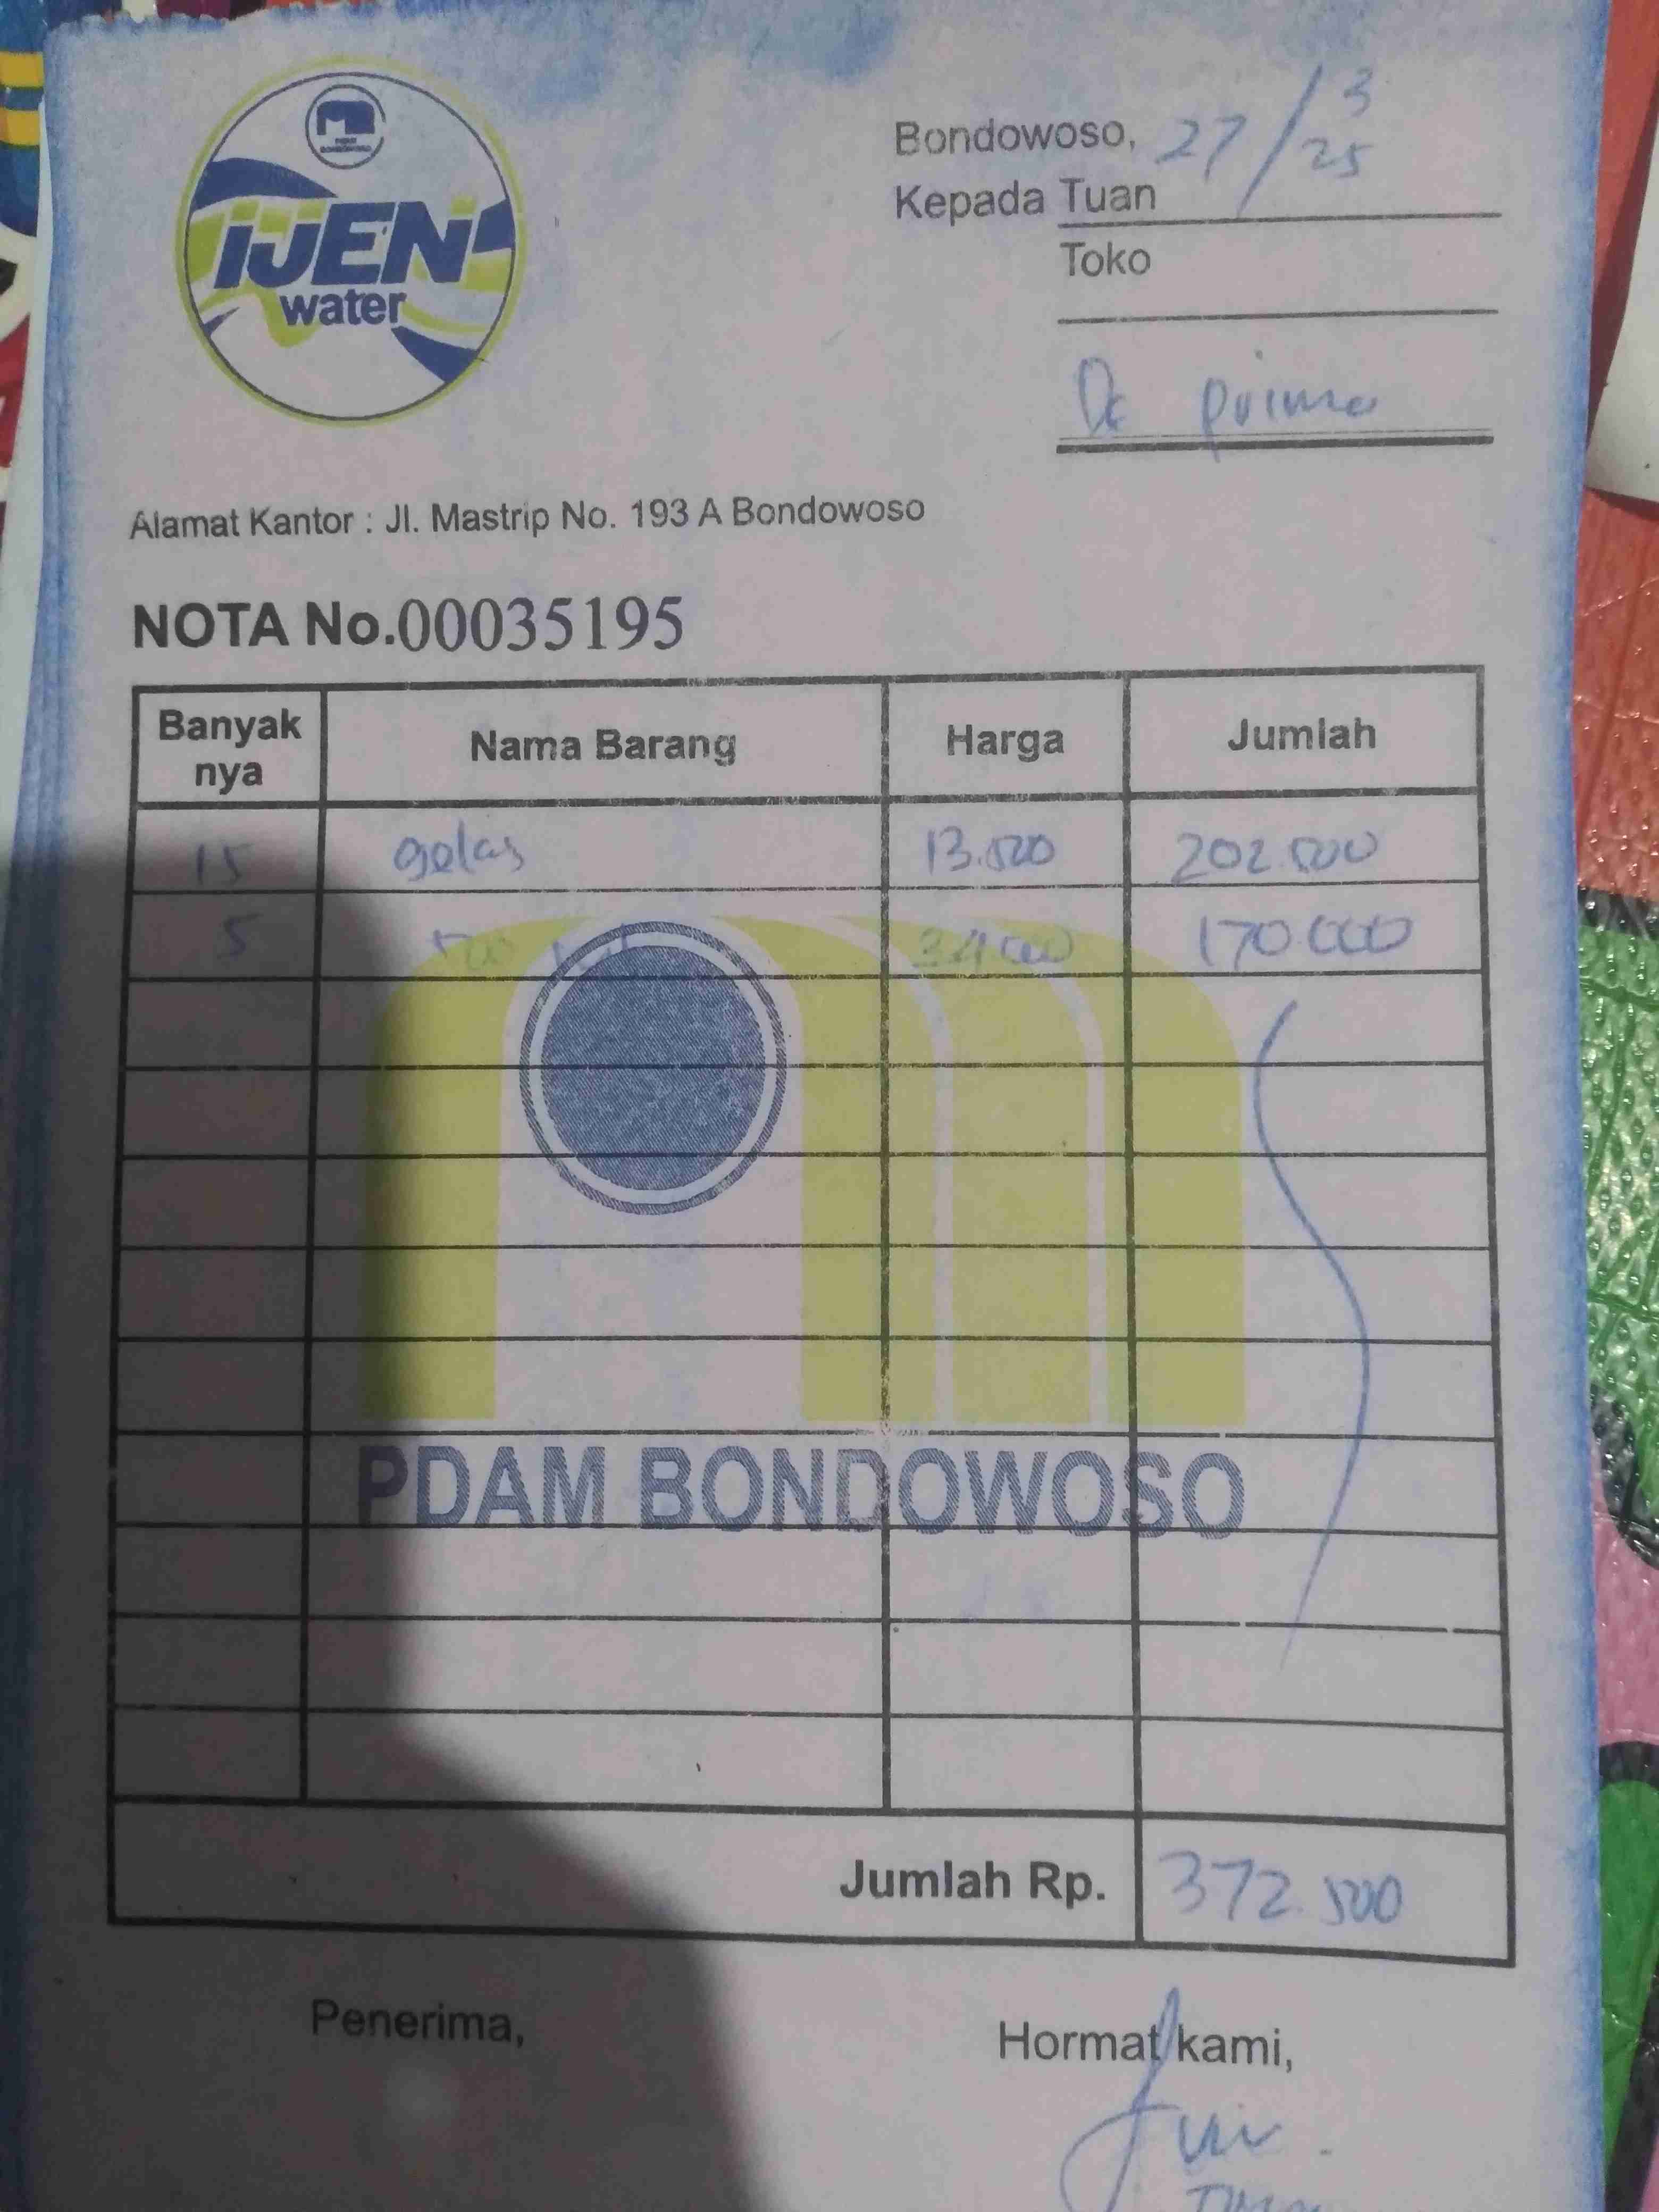 IJEN
water
Bondowoso, 27/3 25
Kepada Tuan
Toko
Dc prima
Alamat Kantor : Jl. Mastrip No. 193 A Bondowoso
NOTA No.00035195
Banyak nya Nama Barang Harga Jumlah
15 gelas 13.500 202.500
5 34.000 170.000
PDAM BONDOWOSO
Jumlah Rp. 372.500
Penerima,
Hormat kami,